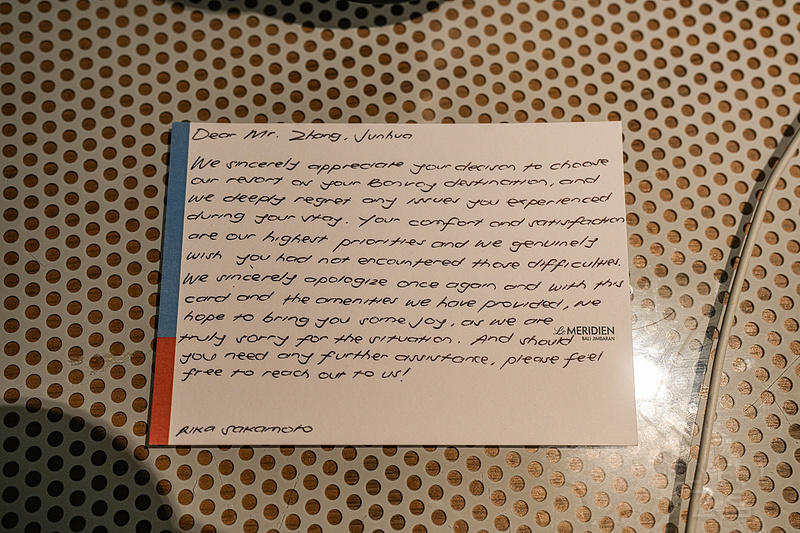 Dear Mr. Zhang, Junhua
We sincerely appreciate your decision to choose
our resort as your Bonvoy destination, and
we deeply regret any issues you experienced
during your stay. Your comfort and satisfaction
are our highest priorities and we genuinely
wish you had not encountered those difficulties.
We sincerely apologize once again and with this
card and the amenities we have provided, we
hope to bring you some joy, as we are
truly sorry for the situation. And should
Le MERIDIEN
BALI JIMBARAN
you need any further assistance, please feel
free to reach out to us!
Rika Sakamoto